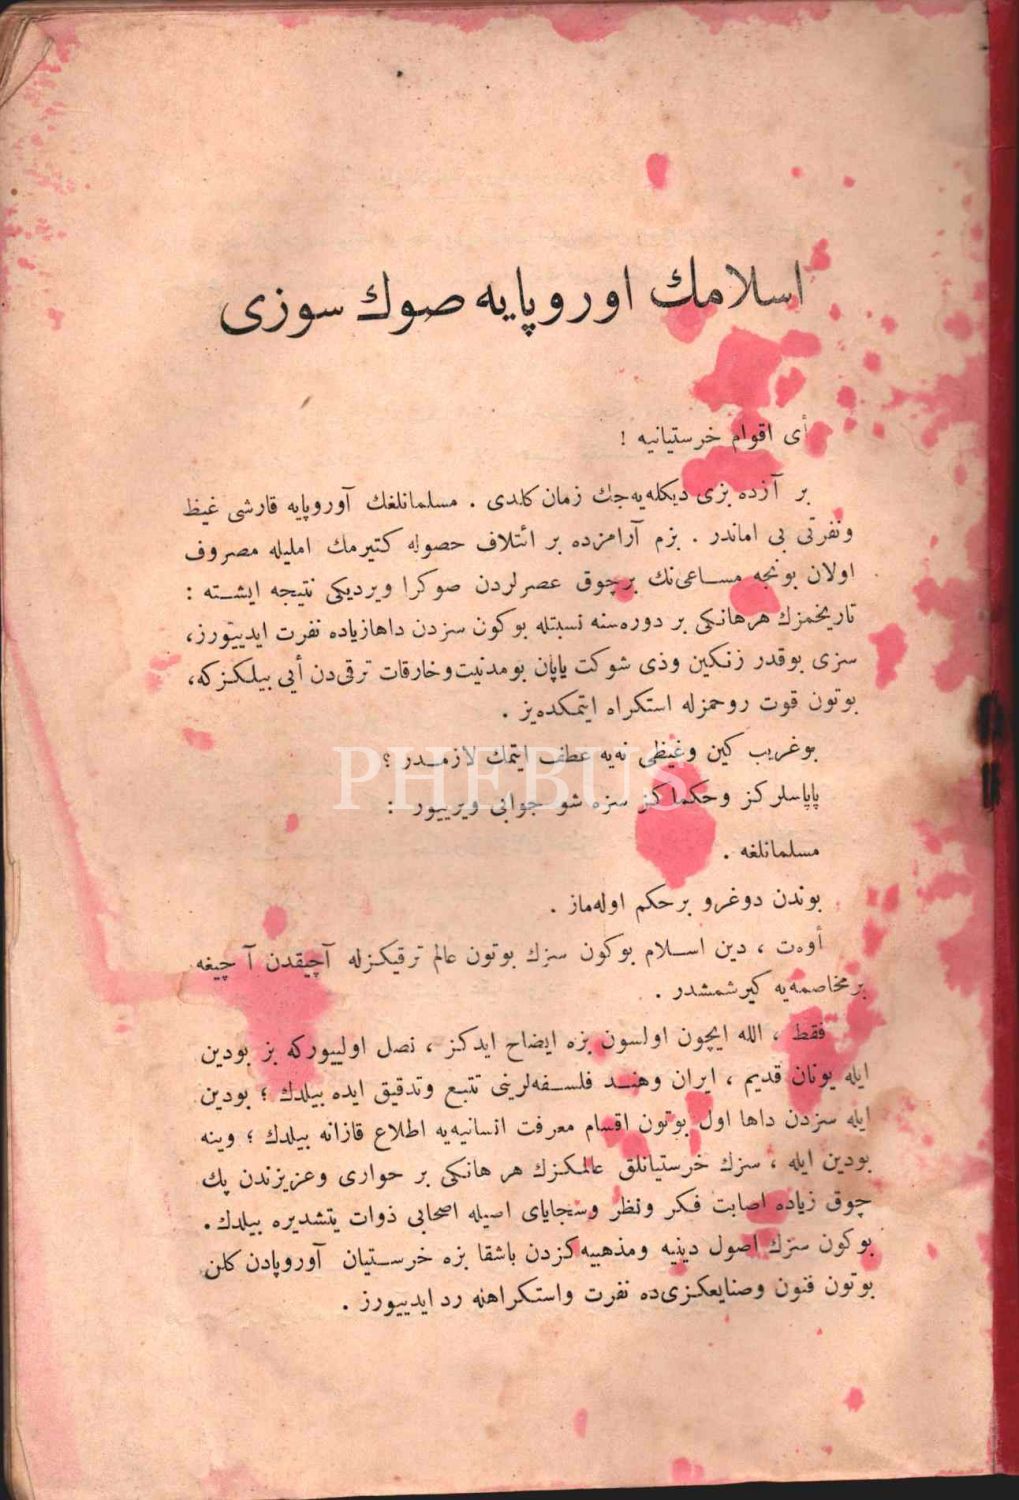 اسلامك اوروپایه صوك سوزی
أی اقوام خرستیانیه !
بر آزده بزی دیكله‌یه‌جك زمان كلدی . مسلمانلغك آوروپایه قارشی غیظ
ونفرتی بی اماندر . بزم آرامزده بر ائتلاف حصوله كتیرمك املیله مصروف
اولان بونجه مساعی‌نك برچوق عصرلردن صوكرا ویردیكی نتیجه ایشته :
تاریخمزك هرهانكی بر دوره‌سنه نسبتله بوكون سزدن داهازیاده نفرت ایدییورز،
سزی بوقدر زنكین وذی شوكت یاپان بومدنیت‌وخارقات ترقی‌دن أیی بیلكزكه،
بوتون قوت روحمزله استكراه ایتمكده‌یز .
بوغریب كین وغیظی نه‌یه عطف ایتمك لازمدر ؟
PHEBUS
پاپاسلركز وحكماكز سزه شو جوابی ویرییور :
مسلمانلغه .
بوندن دوغرو برحكم اوله‌ماز .
أوه‌ت ، دین اسلام بوكون سزك بوتون عالم ترقیكزله آچیقدن آ چیغه
برمخاصمه‌یه كیرشمشدر .
فقط ، الله ایچون اولسون بزه ایضاح ایدكز ، نصل اولییوركه بز بودین
ایله یونان قدیم ، ایران وهند فلسفه‌لرینی تتبع وتدقیق ایده بیلدك ؛ بودین
ایله سزدن داها اول بوتون اقسام معرفت انسانیه‌یه اطلاع قازانه بیلدك ؛ وینه
بودین ایله ، سزك خرستیانلق عالمكزك هر هانكی بر حواری وعزیزندن پك
چوق زیاده اصابت فكر ونظر وسجایای اصیله اصحابی ذوات یتشدیره بیلدك .
بوكون سزك اصول دینیه ومذهبیه‌كزدن باشقا بزه خرستیان آوروپادن كلن
بوتون فنون وصنایعكزی‌ده نفرت واستكراهنه رد ایدییورز .